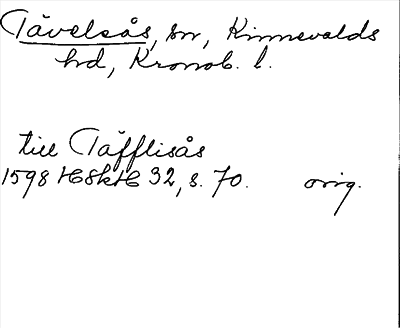 Tävelsås, sn, Kinnevalds
hd, Kronob. l.
till Täfflisås
1598 HSkH 32, s. 70. orig.